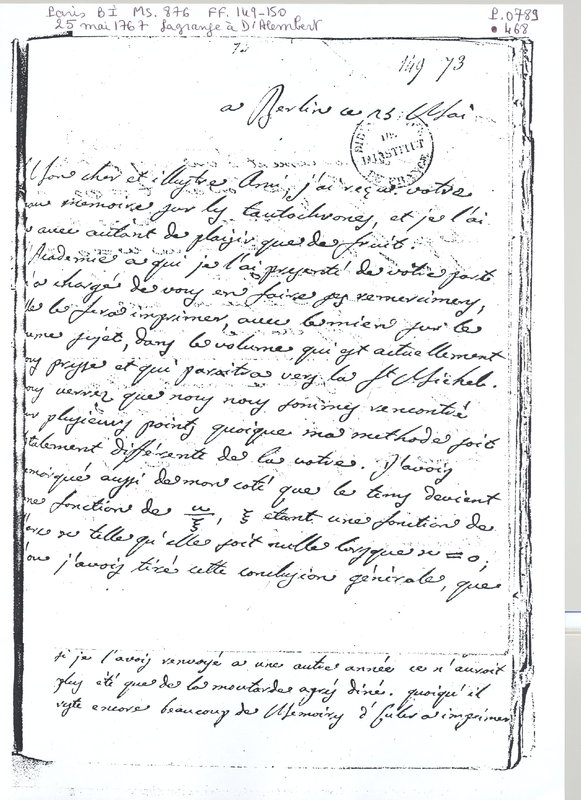 Paris BI MS. 876 FF. 149-150
25 mai 1767 Lagrange à D'Alembert
P. 0789
• 468
149 73
a Berlin ce 25 Mai
BIB DE L'INSTITUT DE FRANCE
Mon cher et illustre Ami, j'ai reçu votre
mémoire sur les tautochrones, et je l'ai
avec autant de plaisir que de fruit.
Académie a qui je l'ai presenté de votre part
a chargé de vous en faire ses remercimens,
le fera imprimer avec le mien sur le
sujet, dans le volume qui est actuellement
presse et qui paraitra vers la St Michel.
verrez que nous nous sommes rencontré
plusieurs points quoique ma methode soit
totalement différente de la votre. J'avois
remarqué aussi de mon coté que le tems devient
une fonction de u/ξ, ξ etant une fonction de
telle qu'elle soit nulle lorsque = 0,
j'avois tiré cette conclusion générale, que
si je l'avois renvoyé a une autre année ce n'auroit
plus été que de la moutarde après diné. quoiqu'il
reste encore beaucoup de Memoires d'Euler a imprimer